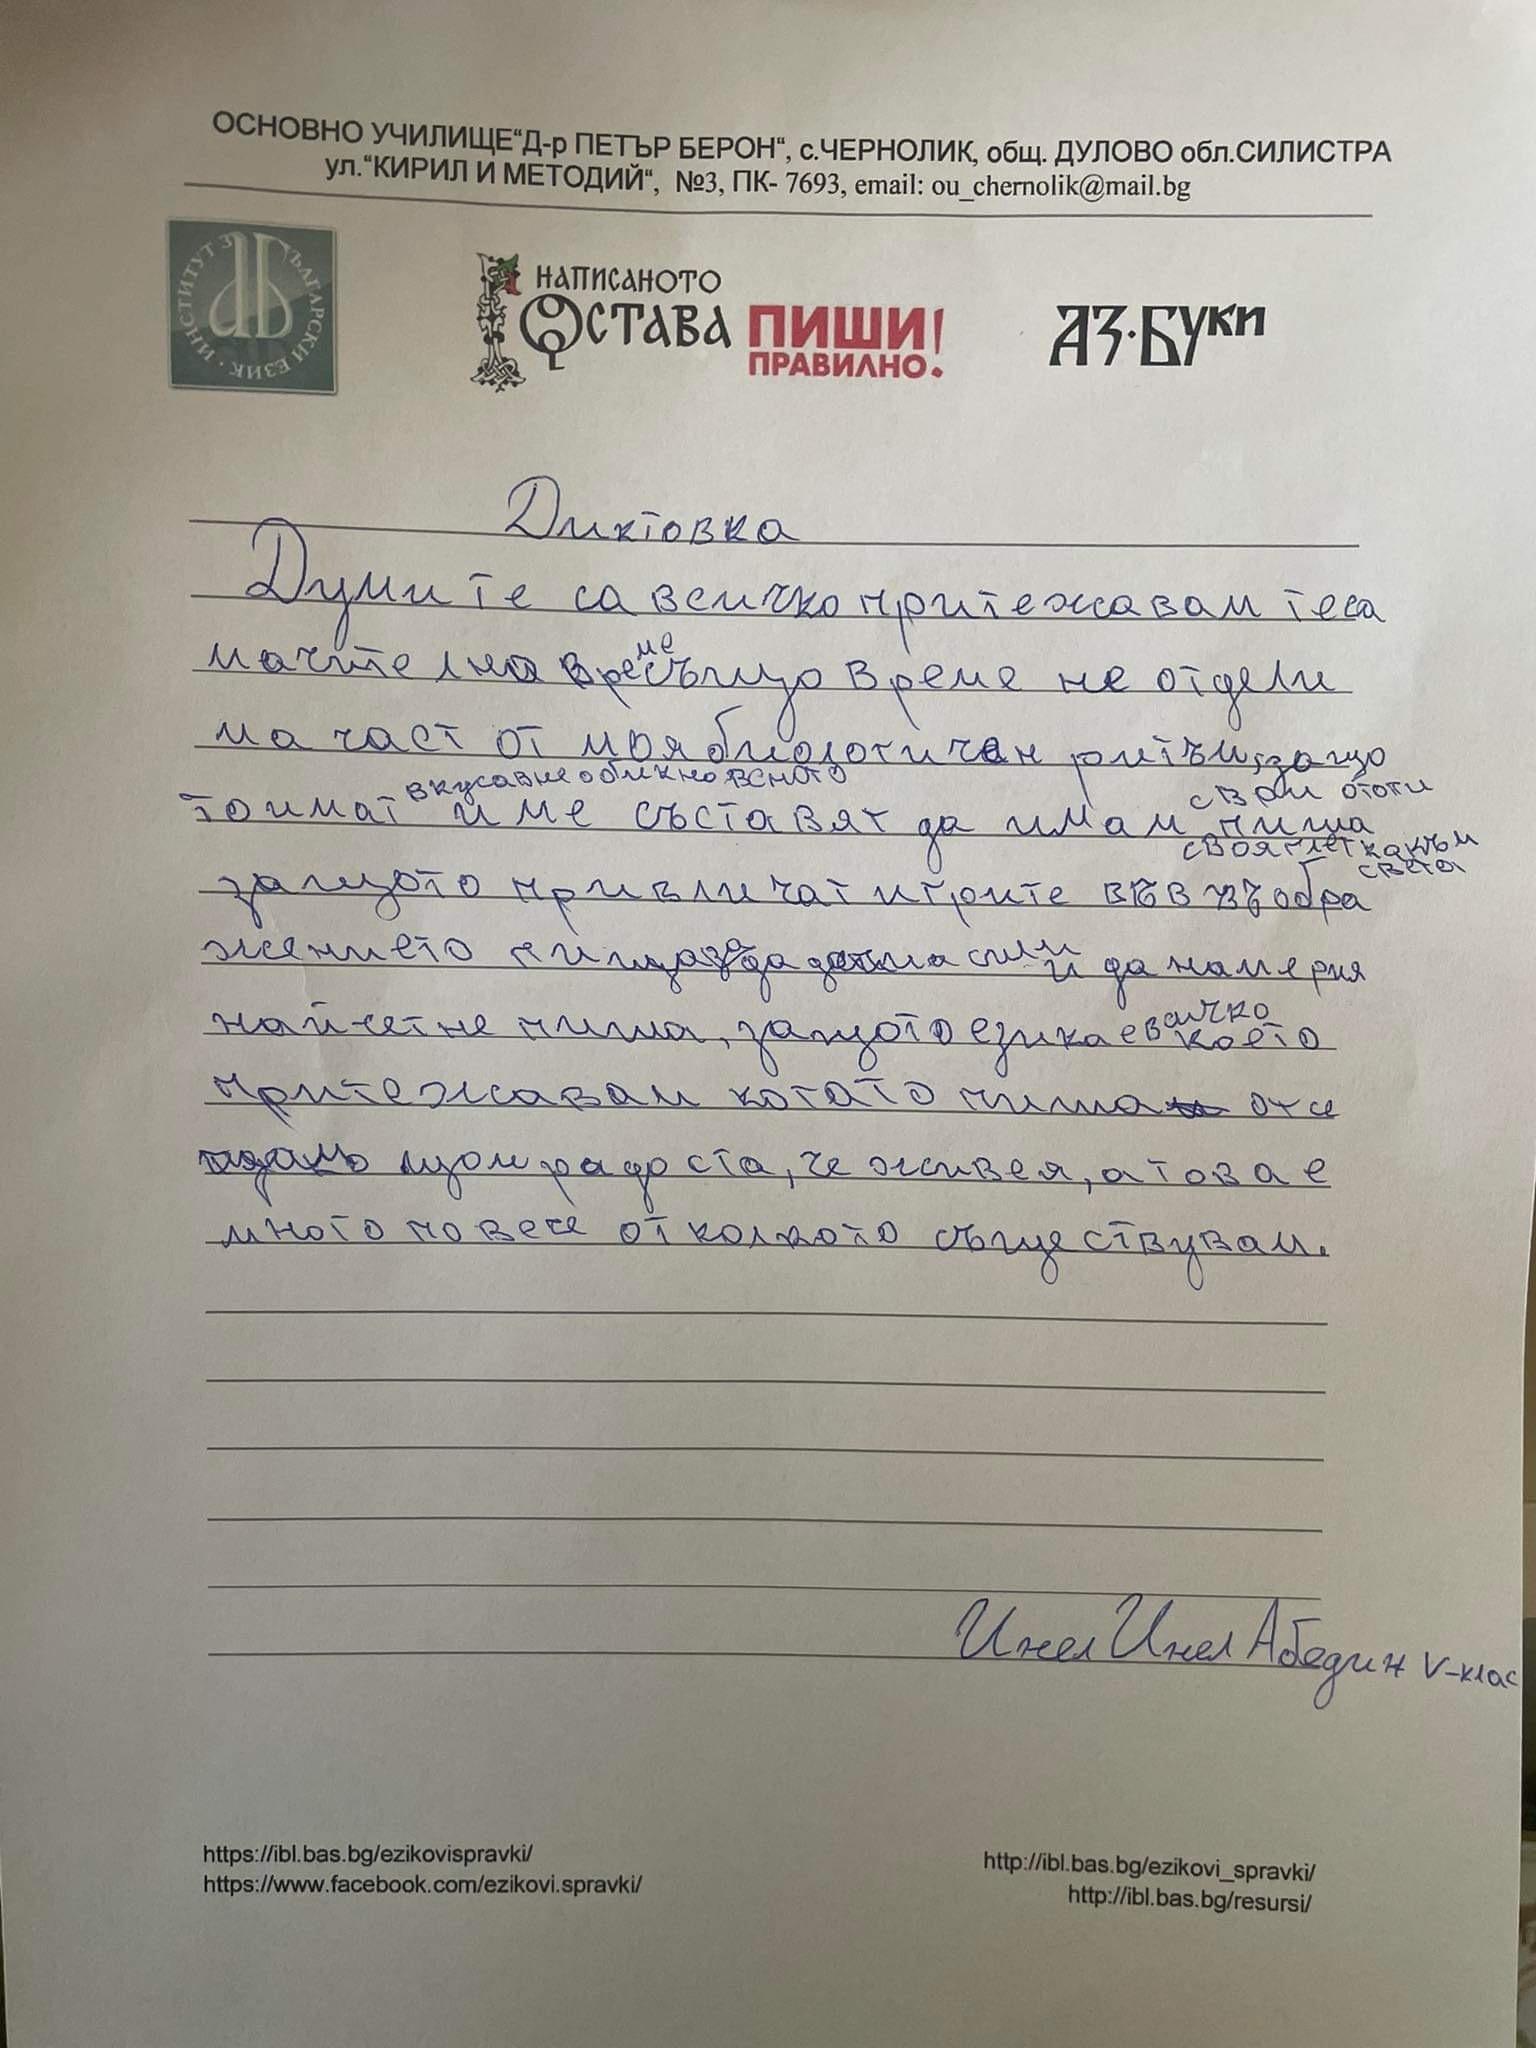 ОСНОВНО УЧИЛИЩЕ“Д-р ПЕТЪР БЕРОН“, с.ЧЕРНОЛИК, общ. ДУЛОВО обл.СИЛИСТРА
ул.“КИРИЛ И МЕТОДИЙ“, №3, ПК- 7693, email: ou_chernolik@mail.bg
ИНСТИТУТ ЗА БЪЛГАРСКИ ЕЗИК
НАПИСАНОТО
ОСТАВА
ПИШИ
ПРАВИЛНО!
АЗ·БУКИ
Диктовка
Думите са всичко притежавам теса
мачителна време също време не отдели
ма част от моя биологичен ритъм, защо
вкусавне обикновеното
то имат и ме съставят да имам пиша
свои отоги
своя глетка към
света
защото привличат игрите във въобра
жението пища за да дотма сили и да намеря
найчетне пиша, защото езика е всичко
което
притежавам когато пиша отк
луом радоста, че живея, а това е
много повече отколкото съществувам.
Инел Инел Абедин V-клас
https://ibl.bas.bg/ezikovispravki/
https://www.facebook.com/ezikovi.spravki/
http://ibl.bas.bg/ezikovi_spravki/
http://ibl.bas.bg/resursi/